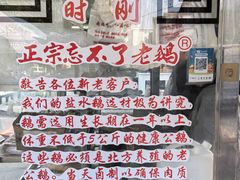 时刚
正宗忘不了老鹅®
敬告各位新老客户
我们的盐水鹅选材极为讲究
鹅需选用生长期在一年以上
体重不低于5公斤的健康公鹅
这些鹅必须是北方养殖的老
公鹅，当天宰割以确保肉质